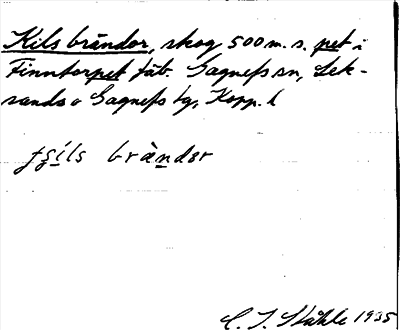 Kils brändor, skog 500 m. s. pet i
Finntorpet fäb. Gagnefs sn, Lek-
sands o Gagnefs tg, Kopp. l
brändor
C. I. Ståhle 1935